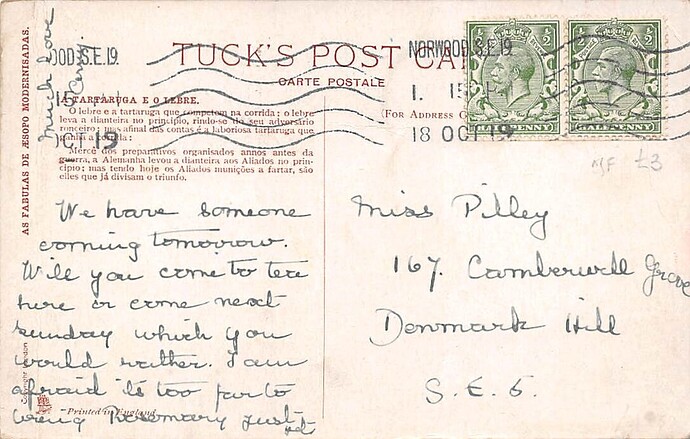 AS FABULAS DE ÆSOPO MODERNISADAS.
Much Love
TUCK'S POST CA
CARTE POSTALE
(FOR ADDRESS O
A TARTARUGA E O LEBRE.
O lebre e a tartaruga que competem na corrida: o lebre
leva a dianteira ao principio, rindo-se do seu adversário
ronceiro: mas afinal das contas é a laboriosa tartaruga que
ganha a corrida.
Mercê dos preparativos organisados annos antes da
guerra, a Alemanha levou a dianteira aos Aliados no prin-
cipio; mas tendo hoje os Aliados munições a fartar, são
elles que já divisam o triunfo.
OOD S.E.19.
15
OCT 19
NORWOOD S.E.19
1. 15
18 OCT 19
HALFPENNY
HALFPENNY
£3
We have someone
coming tomorrow.
Will you come to tea
here or come next
sunday which you
would rather. I am
afraid it's too far to
bring Rosemary just
yet
Miss Pilley
167. Camberwell Grove
Denmark Hill
S.E.5.
Copyright London
Printed in England